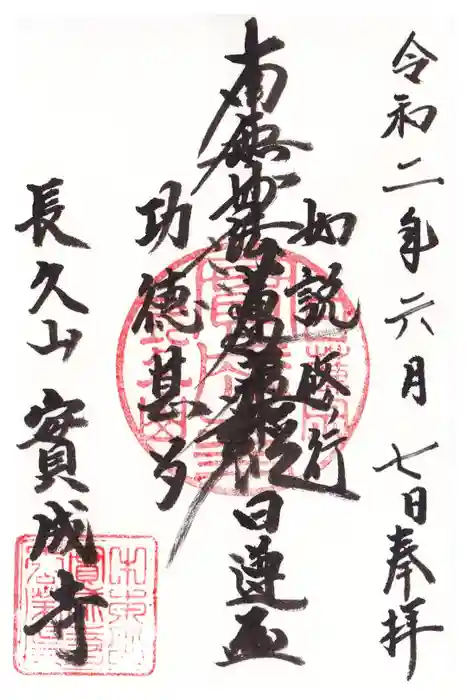 令和二年六月七日奉拝
如説修行
南無妙法蓮華経 日蓮
功徳甚多
長久山 實成寺